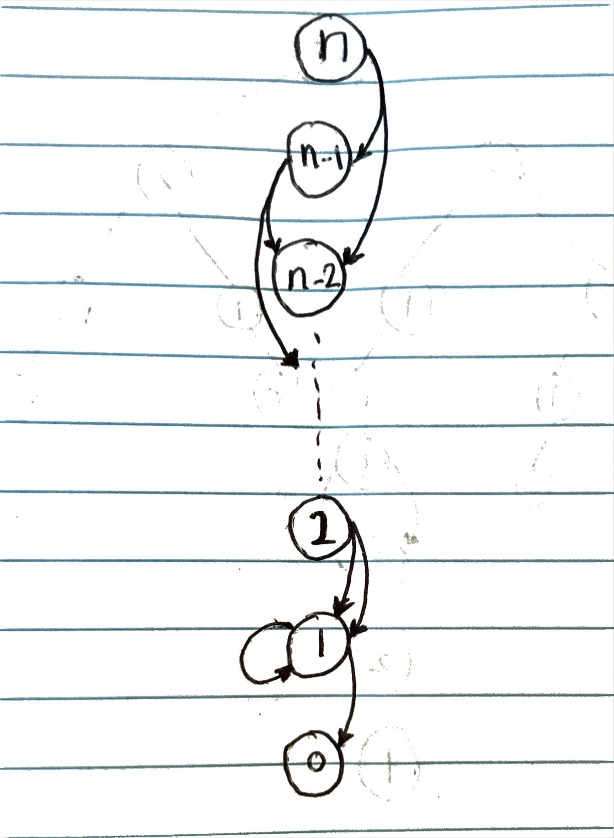 n
n-1
n-2
2
1
0